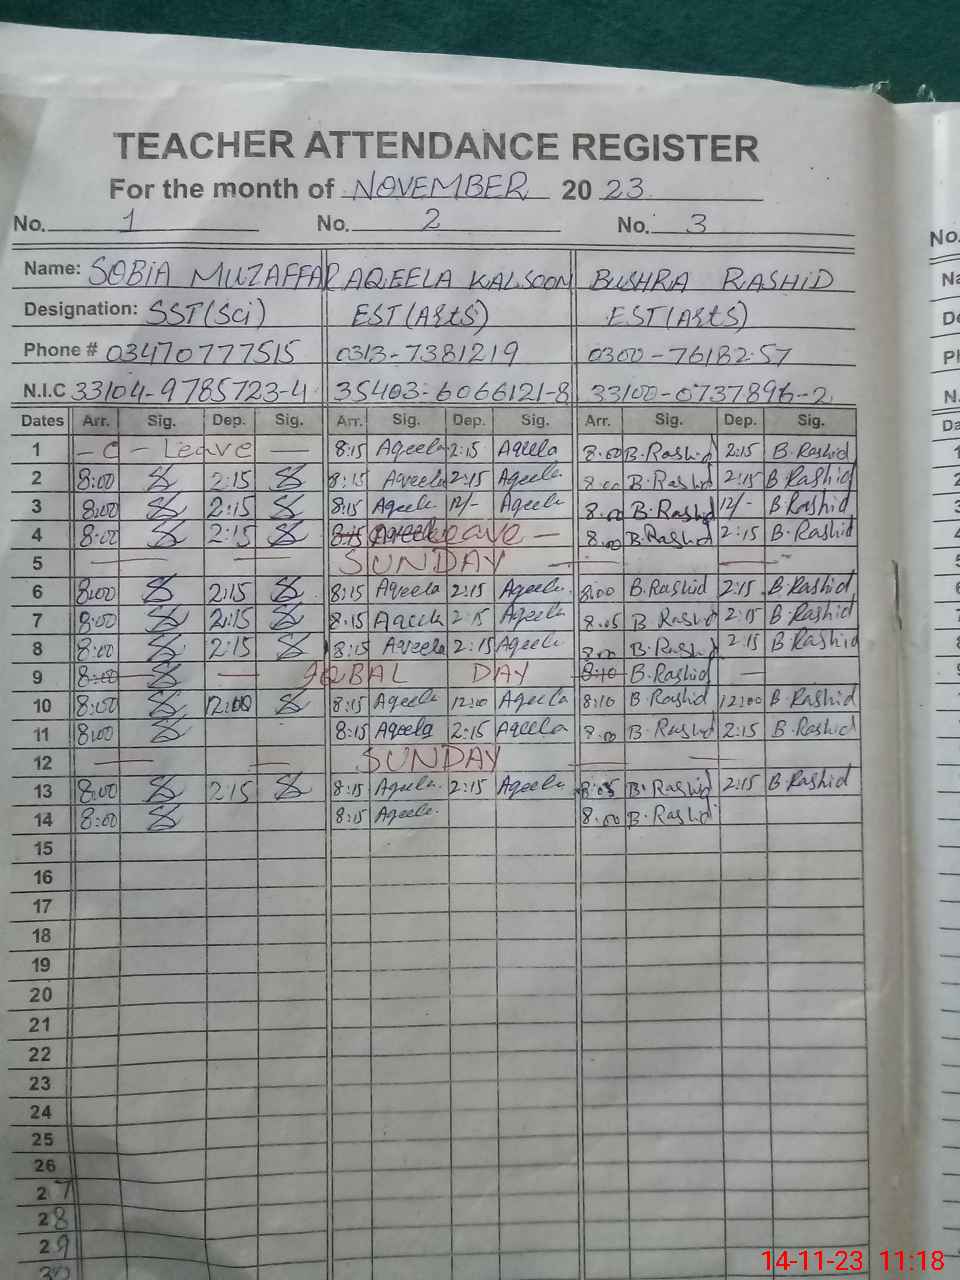 TEACHER ATTENDANCE REGISTER
For the month of NOVEMBER 20 23
No. 1 No. 2 No. 3
No.
Name: SOBIA MUZAFFAR AQEELA KALSOOM BUSHRA RASHID
Na
Designation: SST(Sci) EST(Arts) EST(Arts)
De
Phone # 03470777515 0313-7381219 0300-7618257
Ph
N.I.C 33104-9785723-4 35403-6066121-8 33100-0737896-2
N.
Dates Arr. Sig. Dep. Sig. Arr. Sig. Dep. Sig. Arr. Sig. Dep. Sig.
Da
1 - C - Leave — 8:15 Aqeela 2:15 Aqeela 8:00 B.Rashid 2:15 B.Rashid
2 8:00 2:15 8:15 Aqeela 2:15 Aqeela 8:00 B.Rashid 2:15 B.Rashid
3 8:00 2:15 8:15 Aqeela 12/- Aqeela 8:00 B.Rashid 12/- B.Rashid
4 8:00 2:15 8:15 Aqeela Leave — 8:00 B.Rashid 2:15 B.Rashid
5 SUNDAY
6 8:00 2:15 8:15 Aqeela 2:15 Aqeela 8:00 B.Rashid 2:15 B.Rashid
7 8:00 2:15 8:15 Aqeela 2:15 Aqeela 8:05 B.Rashid 2:15 B.Rashid
8 8:00 2:15 8:15 Aqeela 2:15 Aqeela 8:00 B.Rashid 2:15 B.Rashid
9 8:00 — IQBAL DAY 8:10 B.Rashid —
10 8:00 12:00 8:15 Aqeela 12:00 Aqeela 8:10 B.Rashid 12:00 B.Rashid
11 8:00 8:15 Aqeela 2:15 Aqeela 8:00 B.Rashid 2:15 B.Rashid
12 SUNDAY
13 8:00 2:15 8:15 Aqeela 2:15 Aqeela 8:05 B.Rashid 2:15 B.Rashid
14 8:00 8:15 Aqeela 8:00 B.Rashid
15
16
17
18
19
20
21
22
23
24
25
26
27
28
29
30
14-11-23 11:18